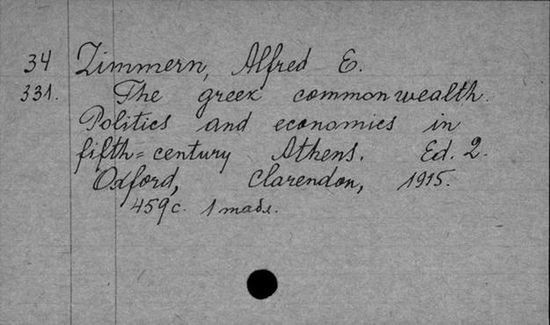 34 Zimmern, Alfred E.
331. The greek commonwealth.
Politics and economics in
fifth=century Athens. Ed. 2.
Oxford, Clarendon, 1915.
459c. 1 map.